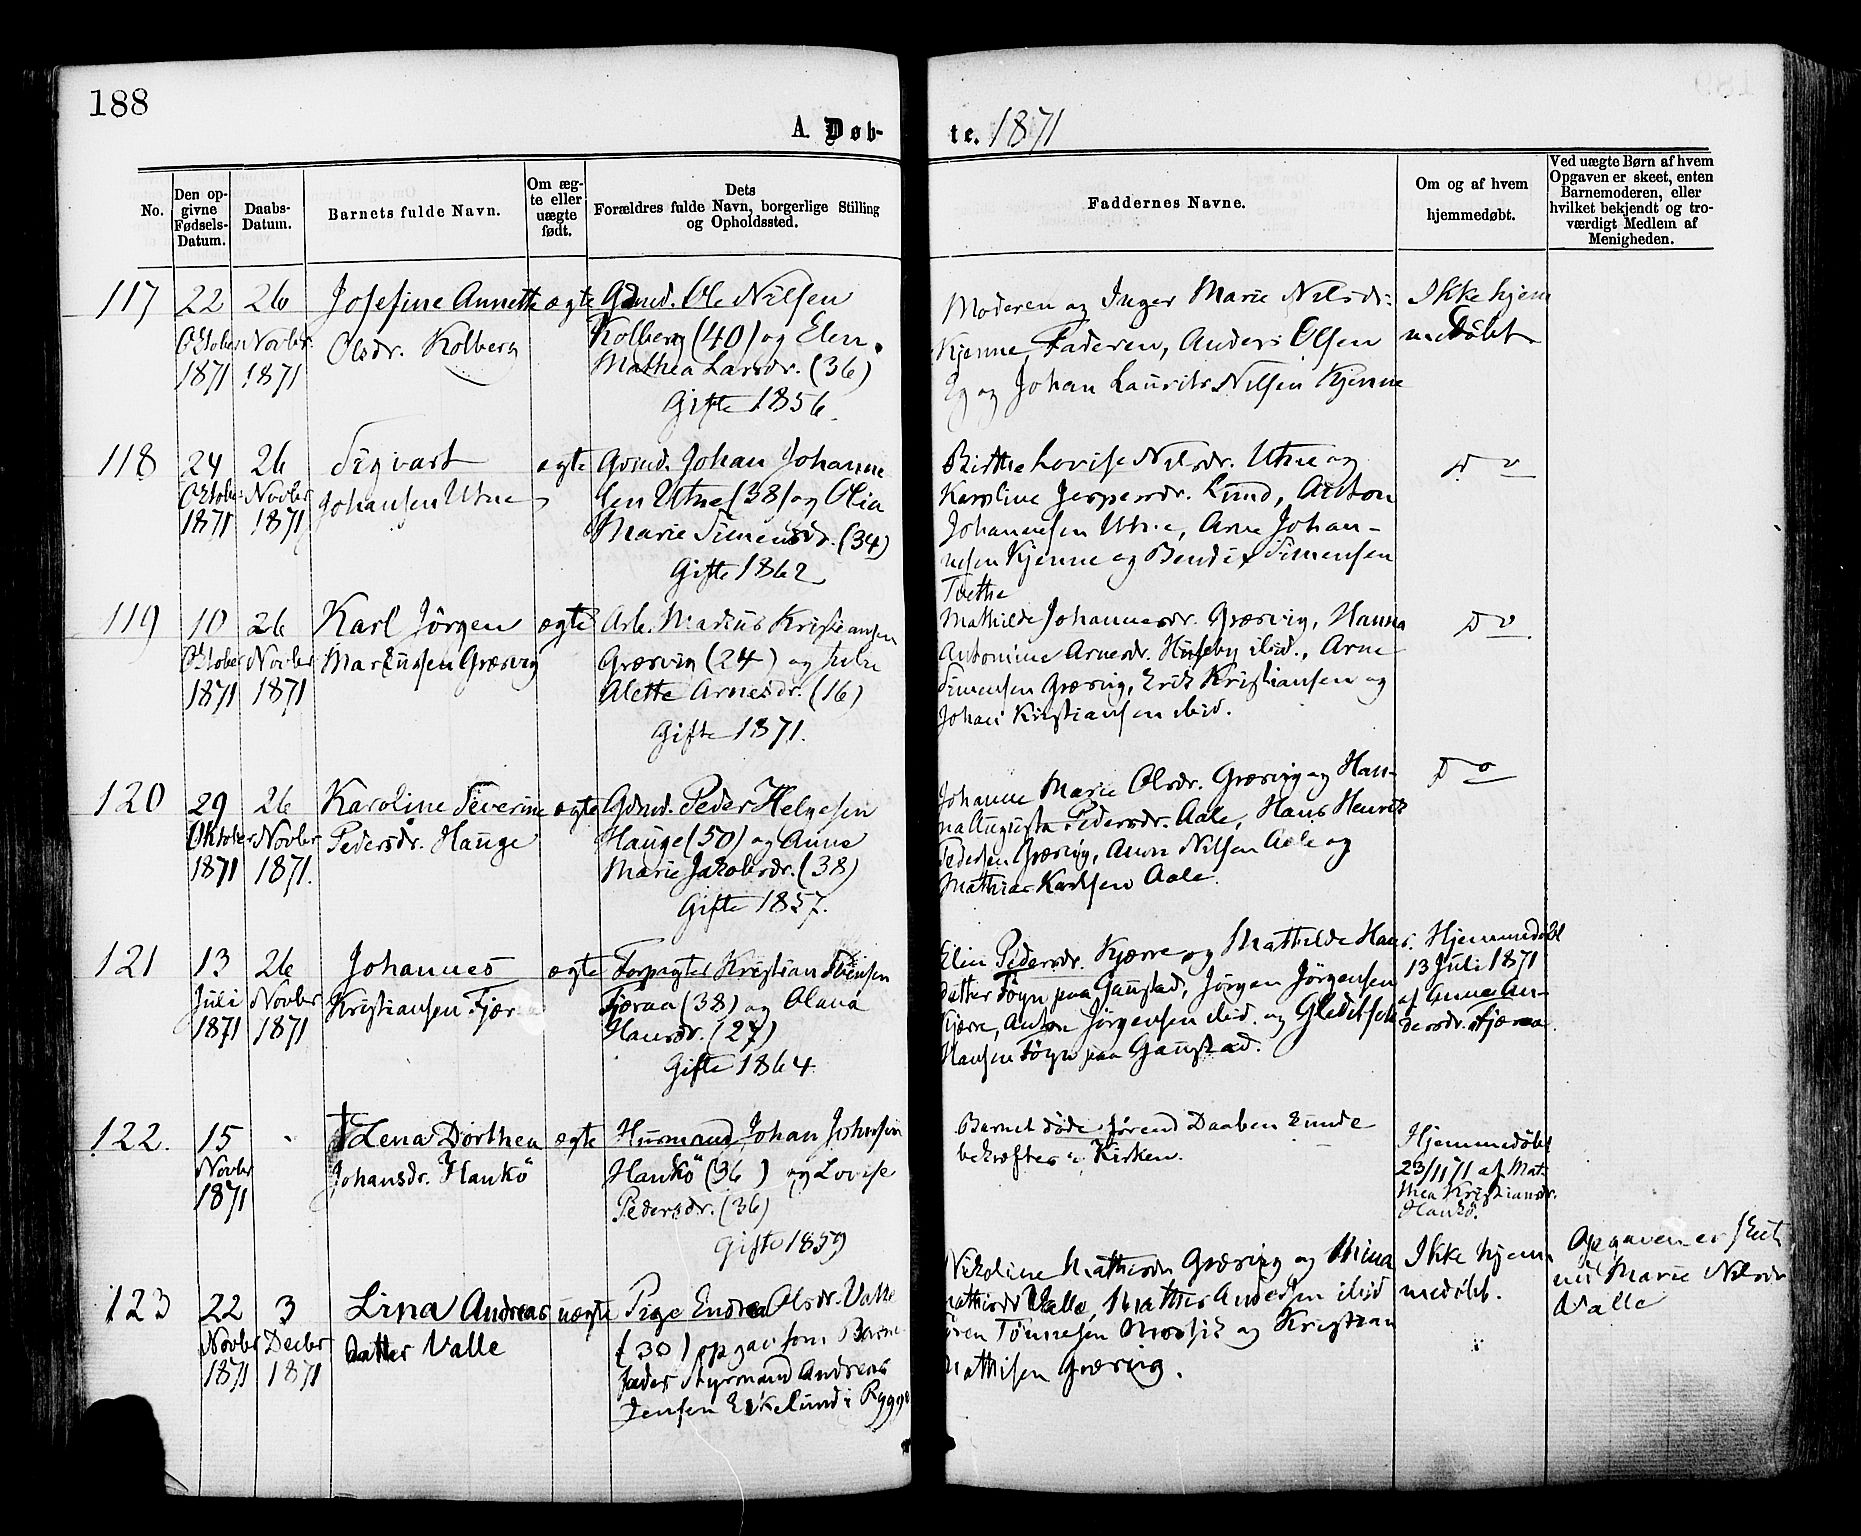 188
A. Døb-
te. 1871
No.
Den op-
givne
Fødsels-
Datum.
Daabs-
Datum.
Barnets fulde Navn.
Om æg-
te eller
uægte
født.
Dets
Forældres fulde Navn, borgerlige Stilling
og Opholdssted.
Faddernes Navne.
Om og af hvem
hjemmedøbt.
Ved uægte Børn af hvem
Opgaven er skeet, enten
Barnemoderen, eller
hvilket bekjendt og tro-
værdigt Medlem af
Menigheden.
117
22
Oktober
1871
26
Novbr.
1871
Josefine Annette
Olsdr. Kolberg
ægte
Gdmd. Ole Nilsen
Kolberg (40) og Elen
Mathea Larsdr. (36)
Gifte 1856.
Moderen og Inger Marie Nilsdr.
Kjenne, Faderen, Anders Olsen
Eg og Johan Laurits Nilsen Kjenne
Ikke hjem
medøbt
118
24
Oktober
1871
26
Novbr
1871
Sigvart
Johansen Utne
ægte
Gdmd. Johan Johanne
sen Utne (38) og Olia
Marie Simensdr. (34)
Gifte 1862
Birthe Lovise Nilsdr. Utne og
Karoline Jespersdr. Lund, Anton
Johannesen Utne, Arne Johan-
nesen Kjenne og Bendix Simensen
Tøthe
Do
119
10
Oktober
1871
26
Novbr
1871
Karl Jörgen
Markussen Græsvig
ægte
Arb. Markus Kristiansen
Græsvig (24) og
Alette Arnesdr. (16)
Gifte 1871.
Mathilde Johannesdr. Græsvig, Hanna
Antomine Arnesdr. Huseby ibid., Arne
Simensen Græsvig, Erik Kristiansen og
Johan Kristiansen ibid.
Do
120
29
Oktober
1871
26
Novbr
1871.
Karoline Severine
Pedersdr. Hauge
ægte
Gdmd. Peder Helgesen
Hauge (50) og Anne
Marie Jakobsdr. (38)
Gifte 1857.
Johanne Marie Olsdr. Græsvig og Han-
na Augusta Pedersdr. Aale, Hans Henrik
Pedersen Græsvig, Anton Nilsen Aale og
Mathias Karlsen Aale.
Do
121
13
Juli
1871
26
Novbr
1871
Johannes
Kristiansen Fjæraa
ægte
Forpagter Kristian Svensen
Fjæraa (38) og Olava
Hansdr. (27)
Gifte 1864
Elin Pedersdr. Kjærre og Mathilde Hans-
datter Töyn paa Gaustad, Jørgen Jörgensen
Kjærre, Anton Jörgensen ibid. og Gleditsch
Hansen Töyn paa Gaustad.
Hjemmedöbt
13 Juli 1871
af Anne An-
dersdr. Fjæraa.
122.
15
Novbr
1871
-
† Lena Dorthea
Johansdr. Hankö
ægte
Husmand Johan Johnsen
Hankö (36) og Lovise
Pedersdr. (36)
Gifte 1859
Barnet døde førend Daaben kunde
bekræftes i Kirken.
Hjemmedøbt
23/11 71 af Mat
thea Kristiansdr.
Hankö.
123
22
Novbr
1871
3
Decbr
1871
Lina Andreas
datter Valle
uægte
Pige Endrea Olsdr. Valle
(30) opgav som Barne
fader Styrmand Andreas
Jensen Eskelund i Rygge
Nikoline Mathisdr Græsvig og Mina
Mathisdr Valle, Mathis Andersen ibid
Sören Tönnesen og Kristian
Mathisen Græsvig.
Ikke hjem
medøbt.
Opgaven er skeet
Marie Nilsdr
Valle